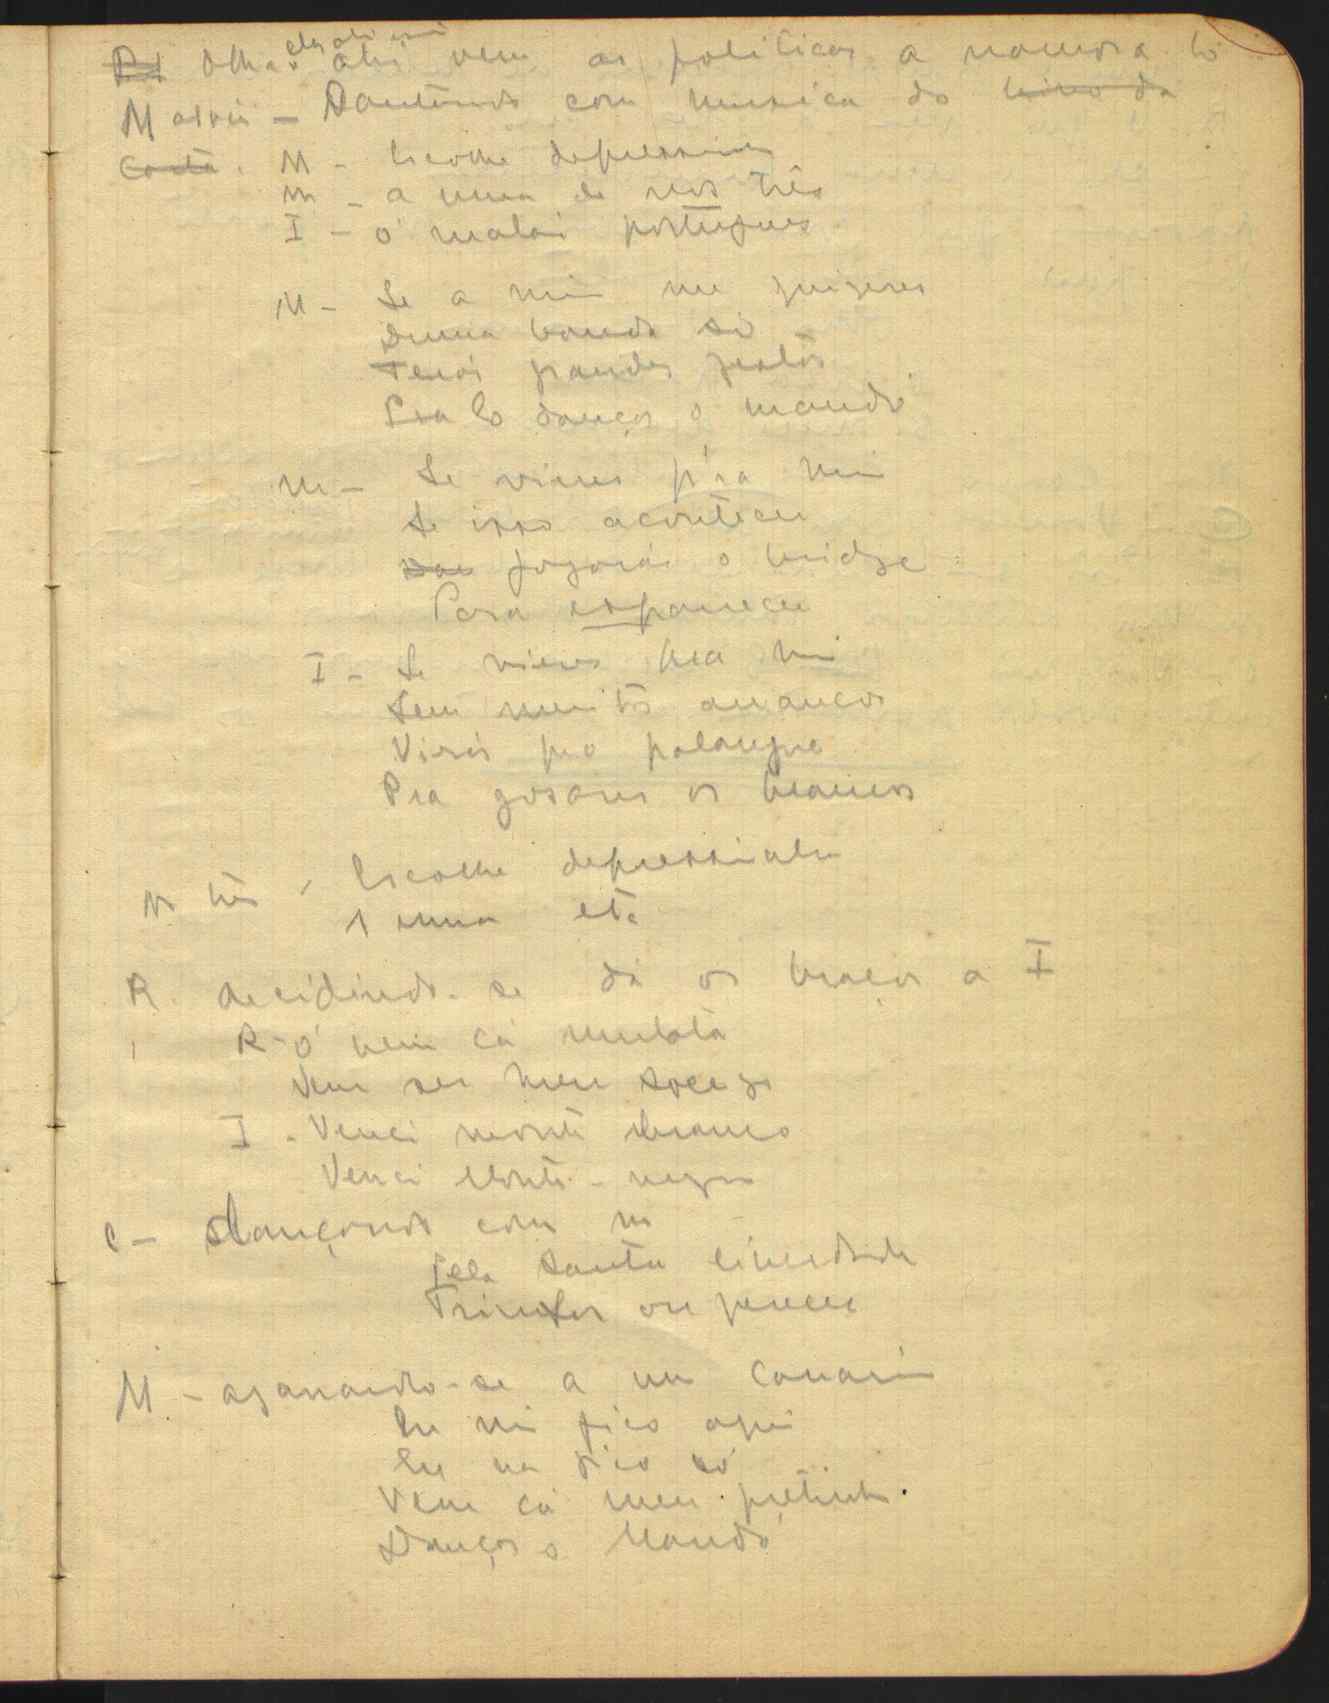 Olha. ahi vem as politicas a namora-lo
M atraz - Dantando com musica do hino da
Carta. M - Escolhe depressinha
m - a uma de nós três
I - ó malai português
M - Se a mim me quizeres
Duma banda só
Terás grandes gostos
Pra lo dançar o mandó
m - Se vieres p'ra mim
Se isso acontecer
jogarás o bridge
Para espairecer
I - Se vieres pra mim
Sem muitos arrancos
Virás pro palanque
Pra gosares os brancos
As três - Escolhe depressinha
1 uma etc
R decidindo-se dá os braços a I
R - ó vem cá mulata
Vem ser meu socego
I - Venci monte branco
Venci Monte-negro
C - dançando com m
Pela santa liberdade
Triunfar ou perecer
M - agarrando-se a um Canarim
Eu mi fico aqui
Eu na fico só
Vem cá meu pretinho.
Dançar o Mandó